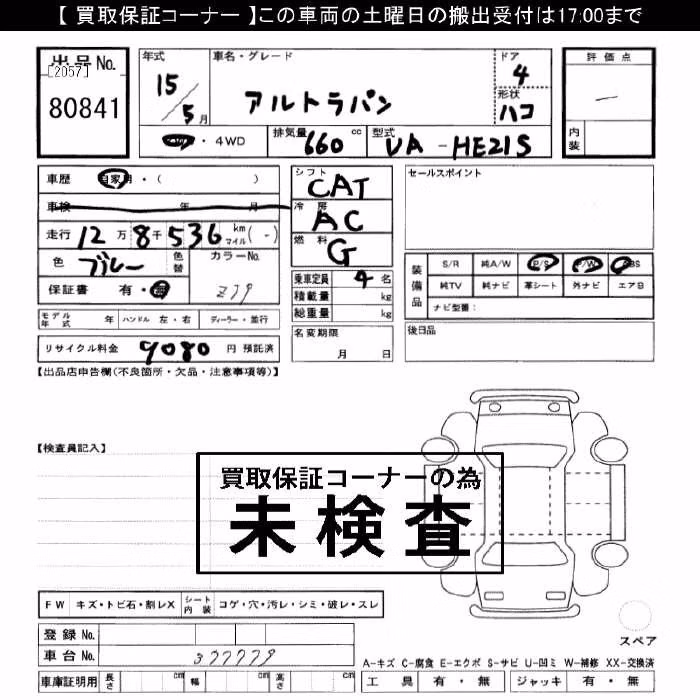 【 買取保証コーナー 】この車両の土曜日の搬出受付は17:00まで
出品No.
[2057]
80841
年式 15/5月
車名・グレード
アルトラパン
ドア 4
形状 ハコ
評価点
ー
内装
・4WD
排気量 660 cc
型式 UA-HE21S
車歴 自家用・( )
車検 年 月
走行 12万8千536 km マイル(-)
色 ブルー 色替 カラーNo. Z79
保証書 有・無
シフト CAT
冷房 AC
燃料 G
乗車定員 4 名
積載量 kg
総重量 kg
セールスポイント
装備品 S/R 純A/W P/S P/W ABS
純TV 純ナビ 革シート 外ナビ エアB
ナビ型番:
モデル年式 年 ハンドル 左・右 ディーラー・並行
名変期限
月 日
後日品
リサイクル料金 9080 円 預託済
【出品店申告欄(不良箇所・欠品・注意事項等)】
【検査員記入】
買取保証コーナーの為
未検査
FW キズ・トビ石・割レX シート内装 コゲ・穴・汚レ・シミ・破レ・スレ
登録 No.
車台 No. 377779
スペア
A-キズ C-腐食 E-エクボ S-サビ U-凹ミ W-補修 XX-交換済
車庫証明用 長さ cm 幅 cm 高さ cm
工具 有・無 ジャッキ 有・無